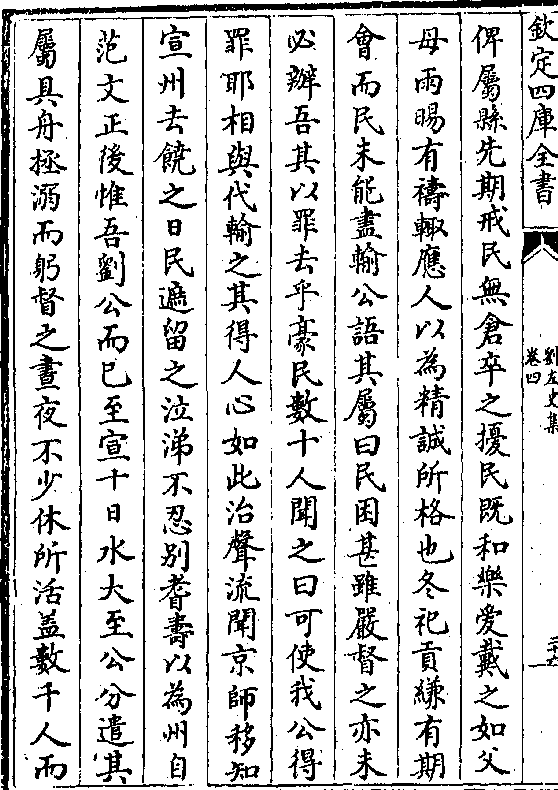 欽定四庫全書
劉左史集
卷四
俾屬縣先期戒民無倉卒之擾民既和樂愛戴之如父
母雨暘有禱輙應人以為精誠所格也冬祀貢縑有期
會而民未能盡輸公語其屬曰民困甚雖嚴督之亦未
必辦吾其以罪去乎豪民數十人聞之曰可使我公得
罪耶相與代輸之其得人心如此治聲流聞京師移知
宣州去饒之日民遮留之泣涕不忍别耆壽以為州自
范文正後惟吾劉公而已至宣十日水大至公分遣其
屬具舟拯溺而躬督之晝夜不少休所活盖數千人而